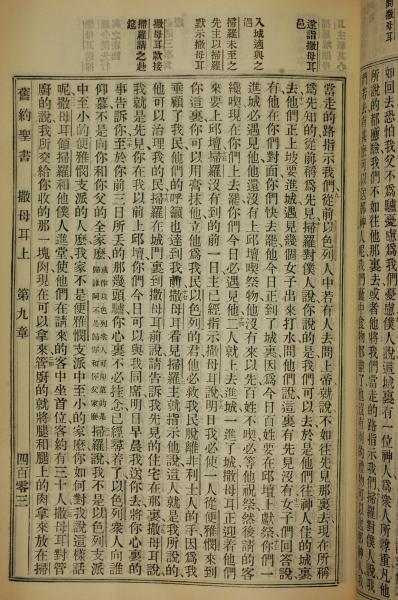 如回去恐怕我父不爲驢憂慮爲我們憂慮僕人說這城裏有一位神人爲衆人所尊重凡他
所說的都應驗我們不如往那裏去或者他將我們當走的路指示我們掃羅對僕人說我
遂詣撒母耳邑
入城適與之遇
掃羅未至之先主以掃羅默示撒母耳
撒母耳款接掃羅請之赴筵
當走的路指示我們從前以色列人中若有人去問上帝就說不如往先見那裏去現在所稱
爲先知的從前稱爲先見掃羅對僕人說你說的是我們可以去於是他們往神人住的城裏
去他們正上坡要進城遇見幾個女子出來打水問他們說這裏有先見沒有女子們回答說
有他在你們對面你們快去罷他今日正到了城裏因爲今日百姓要在邱壇上獻祭你們一
進城必遇見他他還沒有上邱壇喫祭物他沒有來以先百姓不喫必等他祝祭然後請的客
纔喫現在你們上去罷你們今日必遇見他二人就上去進城一進了城撒母耳正迎着他們
來要上邱壇掃羅沒有到的前一日主已經指示撒母耳說明日我必使一人從便雅憫來到
你這裏你可以用膏抹他立他爲我民以色列的君他必救我民脫離非利士人的手因爲我
垂顧了我民他們的呼籲也達到我前撒母耳看見掃羅主就指示他說這人就是我所說的
他可以治理我的民掃羅在城門裏到撒母耳前說請告訴我先見的住宅在那裏撒母耳說
我就是先見你在我以前上邱壇你們今日可以與我同席明日早晨我送你去將你心裏的
事告訴你至於你前三日所丟的那幾頭驢你心裏不必挂念已經尋着了以色列衆人向誰
仰慕不是向你和你父的全家麼或作以色列衆人可羨慕的是歸誰阿不是歸你和你父家麼掃羅說我不是以色列支派
中至小的便雅憫支派的人麼我家不是便雅憫支派中至小的家麼你如何對我說這樣話
呢撒母耳領掃羅和他僕人進堂使他們在請來的客中坐首位客約有三十人撒母耳對管
廚的說我所交給你收的那一塊肉現在可以拿來管廚的就將腿和腿上的肉拿來放在掃
舊約聖書 撒母耳上 第九章 四百零三